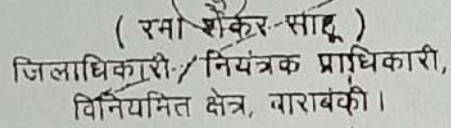 ( रमा शंकर साहू )
जिलाधिकारी / नियंत्रक प्राधिकारी,
विनियमित क्षेत्र, बाराबंकी ।